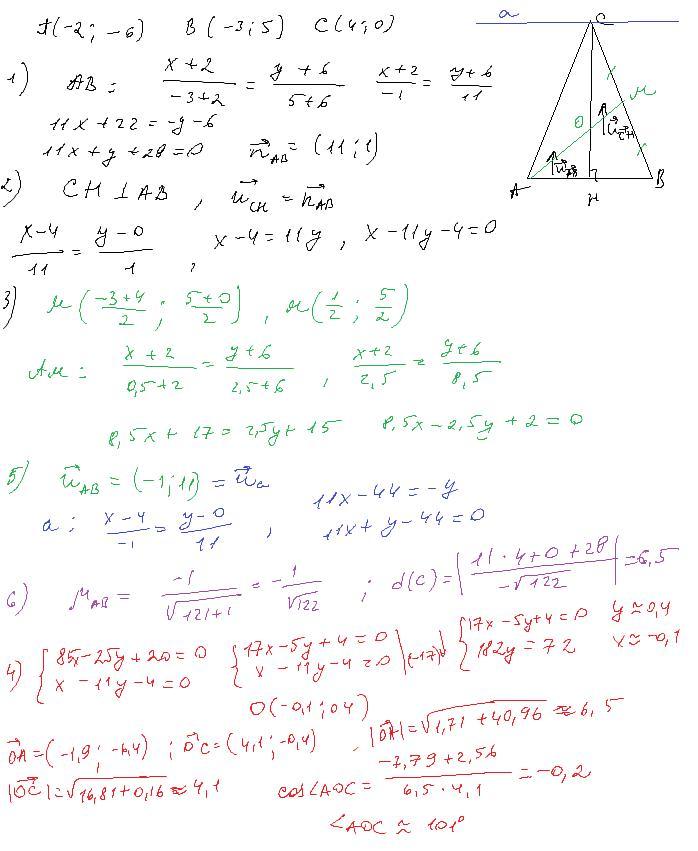 A(-2; -6) B(-3; 5) C(4; 0)
1) AB: (x+2)/(-3+2) = (y+6)/(5+6) (x+2)/(-1) = (y+6)/11
11x + 22 = -y - 6
11x + y + 28 = 0 n⃗_AB = (11; 1)
2) CH ⊥ AB, u⃗_CH = n⃗_AB
(x-4)/11 = (y-0)/1, x - 4 = 11y, x - 11y - 4 = 0
3) M((-3+4)/2; (5+0)/2), M(1/2; 5/2)
AM: (x+2)/(0,5+2) = (y+6)/(2,5+6), (x+2)/2,5 = (y+6)/8,5
8,5x + 17 = 2,5y + 15 8,5x - 2,5y + 2 = 0
5) u⃗_AB = (-1; 11) = u⃗_a
a: (x-4)/(-1) = (y-0)/11, 11x - 44 = -y
11x + y - 44 = 0
6) μ_AB = -1/√(121+1) = -1/√122; d(C) = |(11·4+0+28)/(-√122)| = 6,5
4) {85x - 25y + 20 = 0 {17x - 5y + 4 = 0 {17x - 5y + 4 = 0 y ≈ 0,4
x - 11y - 4 = 0 x - 11y - 4 = 0 |(-17)↓ 182y = 72 x ≈ -0,1
O(-0,1; 0,4)
OA⃗ = (-1,9; -6,4); OC⃗ = (4,1; -0,4), |OA⃗| = √(1,71 + 40,96) ≈ 6,5
|OC⃗| = √(16,81 + 0,16) ≈ 4,1 cos∠AOC = (-7,79 + 2,56)/(6,5·4,1) = -0,2
∠AOC ≈ 101°
a
C
M
O
u⃗_CH
u⃗_AB
A
H
B